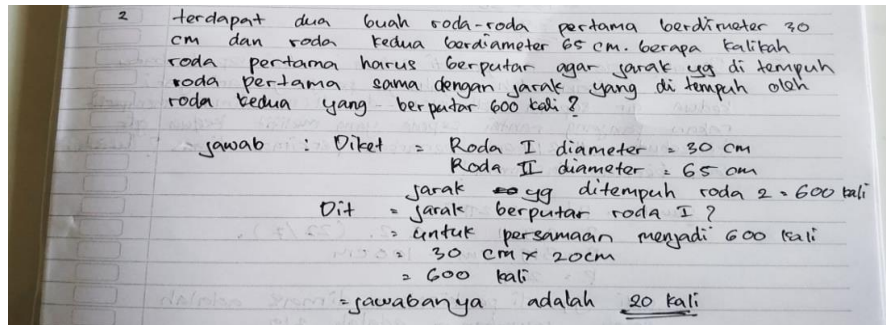 2 terdapat dua buah roda-roda pertama berdimeter 30
cm dan roda kedua berdiameter 65 cm. berapa kalikah
roda pertama harus berputar agar jarak yg di tempuh
roda pertama sama dengan jarak yang di tempuh oleh
roda kedua yang berputar 600 kali?
jawab : Diket = Roda I diameter = 30 cm
Roda II diameter = 65 cm
jarak yg ditempuh roda 2 = 600 kali
Dit = jarak berputar roda I ?
= untuk persamaan menjadi 600 kali
= 30 cm x 20cm
= 600 kali
= jawabanya adalah 20 kali